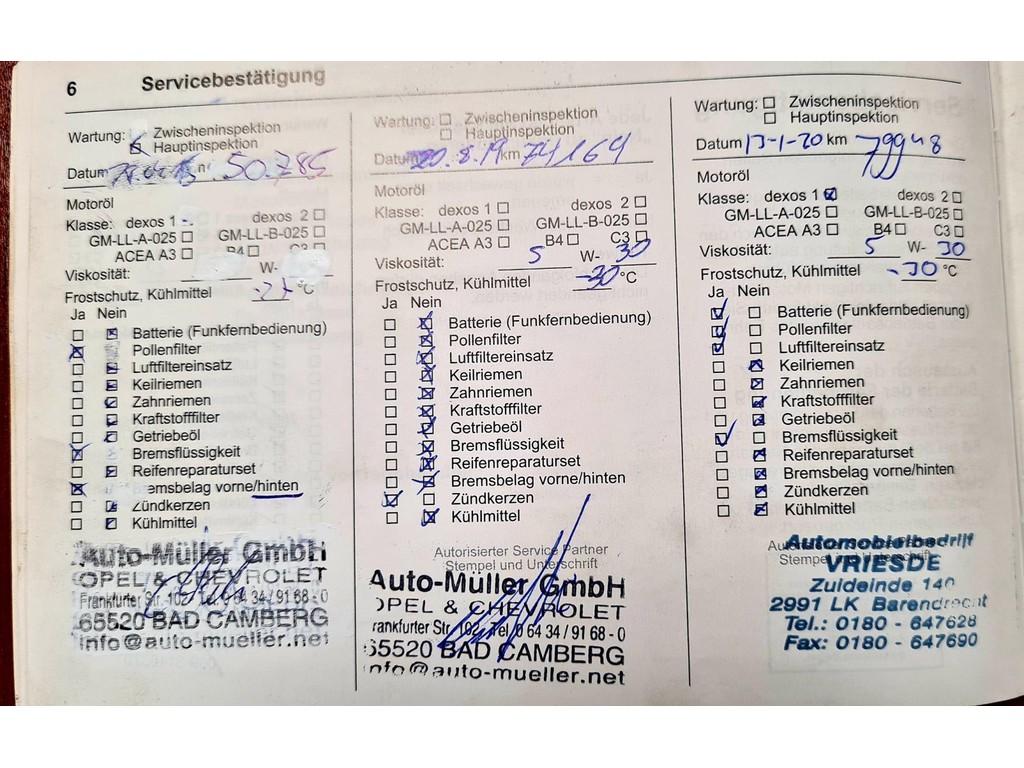 6 Servicebestätigung
Wartung: Zwischeninspektion
Hauptinspektion
Datum 50.785
Motoröl
Klasse: dexos 1 dexos 2
GM-LL-A-025 GM-LL-B-025
ACEA A3 B4 C3
Viskosität: W-
Frostschutz, Kühlmittel °C
Ja Nein
Batterie (Funkfernbedienung)
Pollenfilter
Luftfiltereinsatz
Keilriemen
Zahnriemen
Kraftstofffilter
Getriebeöl
Bremsflüssigkeit
Reifenreparaturset
emsbelag vorne/hinten
Zündkerzen
Kühlmittel
Auto-Müller GmbH
OPEL & CHEVROLET
Frankfurter Str. 102 Tel. 0 64 34 / 91 68 - 0
65520 BAD CAMBERG
info@auto-mueller.net
Wartung: Zwischeninspektion
Hauptinspektion
Datum 20.8.19 km 74164
Motoröl
Klasse: dexos 1 dexos 2
GM-LL-A-025 GM-LL-B-025
ACEA A3 B4 C3
Viskosität: 5 W- 30
Frostschutz, Kühlmittel -30 °C
Ja Nein
Batterie (Funkfernbedienung)
Pollenfilter
Luftfiltereinsatz
Keilriemen
Zahnriemen
Kraftstofffilter
Getriebeöl
Bremsflüssigkeit
Reifenreparaturset
Bremsbelag vorne/hinten
Zündkerzen
Kühlmittel
Autorisierter Service Partner
Stempel und Unterschrift
Auto-Müller GmbH
OPEL & CHEVROLET
rankfurter Str. 102 Tel. 0 64 34 / 91 68 - 0
65520 BAD CAMBERG
info@auto-mueller.net
Wartung: Zwischeninspektion
Hauptinspektion
Datum 13-1-20 km
Motoröl
Klasse: dexos 1 dexos 2
GM-LL-A-025 GM-LL-B-025
ACEA A3 B4 C3
Viskosität: 5 W- 30
Frostschutz, Kühlmittel -30 °C
Ja Nein
Batterie (Funkfernbedienung)
Pollenfilter
Luftfiltereinsatz
Keilriemen
Zahnriemen
Kraftstofffilter
Getriebeöl
Bremsflüssigkeit
Reifenreparaturset
Bremsbelag vorne/hinten
Zündkerzen
Kühlmittel
Stempel und Unterschrift
Automobielbedrijf
VRIESDE
Zuideinde 140
2991 LK Barendrecht
Tel.: 0180 - 647628
Fax: 0180 - 647690